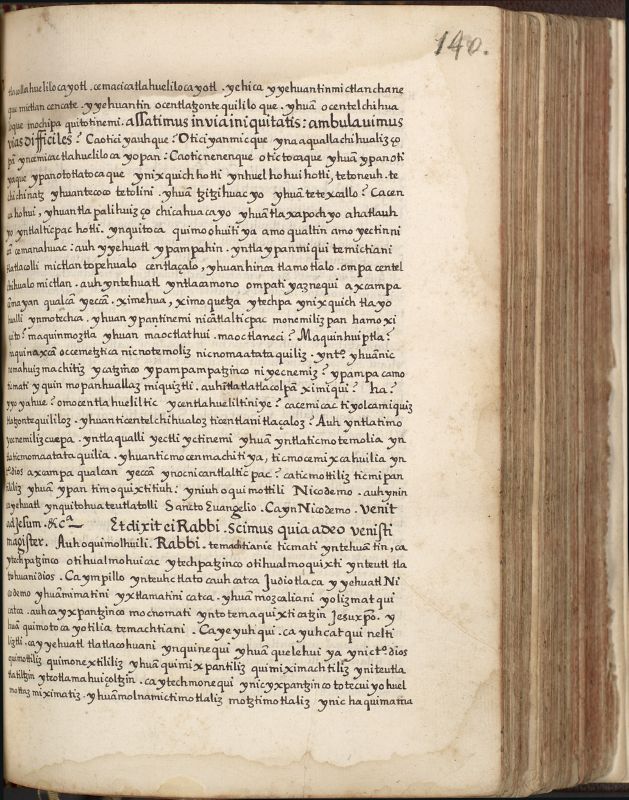 140.
tlacollahuelilocayotl . cemacicatlahuelilocayotl . yehica yyehuantin mictlan chane
que mictlan cencate . yyehuantin ocentlatzontequililo que . yhuā ocentelchihua
loque mochipa quitotinemi . assatimus in via iniquitatis : ambulavimus
vias difficiles ? Caotici yauhque ? Otici yanmicque yna aquallachihualiz ço
pā yncemicac tlahueliloca yopan : Caotic nenenque otictocaque yhuā ypan oti
yaque ypan ototlatocaque ynixquich hotli ynhuel hohui hotli, tetoneuh . te
chichinatz yhuan tecoco tetolini . yhuā tzitzihuac yo yhuā tetexcallo ? Cacen
ca hohui, yhuan tlapalihuiz ço chicahuacayo yhuā tlaxapochyo ahatlauh
yo yntlalticpac hotli . ynquitoca quimo ohuiti ya amo qualtin amo yectin ni
cā cemanahuac : auh yyehuatl ypampahin . yntla ypan miqui temictiani
tlatlacolli mictlan topehualo centlaçalo, yhuan hinca tlamotlalo . ompa centel
chihualo mictlan . auh yntehuatl yntlacamono ompati yaznequi axcampa
cāma yan qualcā yeccā . ximehua, ximoquetza ytechpa ynixquich tlayo
hualli ynmotechca . yhuan ypantinemi nicā tlalticpac monemiliz pan hamo xi
quito ? maquinmoztla yhuan maoctlathui . maoctlaneci ? Maquinhuiptla ?
maquinaxcā occemetztica nicnotemoliz nicnomaatataquiliz . yntº yhuānic
nomahuizmachitiz ycatzinco ypampampatzinco niyecnemiz ? ypampa camo
ticmati yquin mopanhuallaz miquiztli . auhitlatlatlacolpā ximiqui ? ha ?
yyo yahue ? omocentlahueliltic ycentlahueliltiniye ? cacemicac tiyolcamiquiz
tlatzontequililoz . yhuan ticentelchihualoz ticentlani tlaçaloz ? Auh yntlatimo
yecnemiliz cuepa . yntla qualli yectli yctinemi yhuā yntlaticmotemolia yn
tlaticmomaatataquilia . yhuanticmocenmachiti ya, ticmocemixcahuilia yn
tº dios axcampa qualcan yeccā ynocnicantlalticpac ? caticmottiliz ticmipan
itiliz yhuā ypan timoquixtitiuh ? yniuh oquimottili Nicodemo . auhynin
cayehuatl ynquitohua teutlatolli Sancto Evangelio . CaynNicodemo . Venit
ad Jesum . &cª Et dixit ei Rabbi . Scimus quia a deo venisti
magister . Auh oquimolhuili . Rabbi . temachtianie ticmati yntehuātin, ca
ytechpatzinco otihualmohuicac ytechpatzinco otihualmoquixti ynteutl tla
tohuani dios . Caympillo ynteuhctlato cauhcatca Judiotlaca yyehuatl Ni
codemo yhuāmimatini yxtlamatini catca . yhuā mozcaliani yolizmatqui
catca . auhca yxpantzinco mochomati ynto temaquixticatzin Jesuxpō . y
huā quimotocayotilia temachtiani . Cayeyuhqui . ca yuhcatqui nelti
liztli . ca yyehuatl tlatlacohuani ynquinequi yhuā quelehuiya ynictº dios
quimottiliz quimonextililiz yhuā quimixpantiliz quimiximachtiliz yniteutla
tlatiltzin yteotlamahuiçoltzin . ca ytechmonequi ynicyxpantzinco totecuiyohuel
mottaz miximatiz . yhuāmolnamictimotlaliz motztimotlaliz ynic haquimama